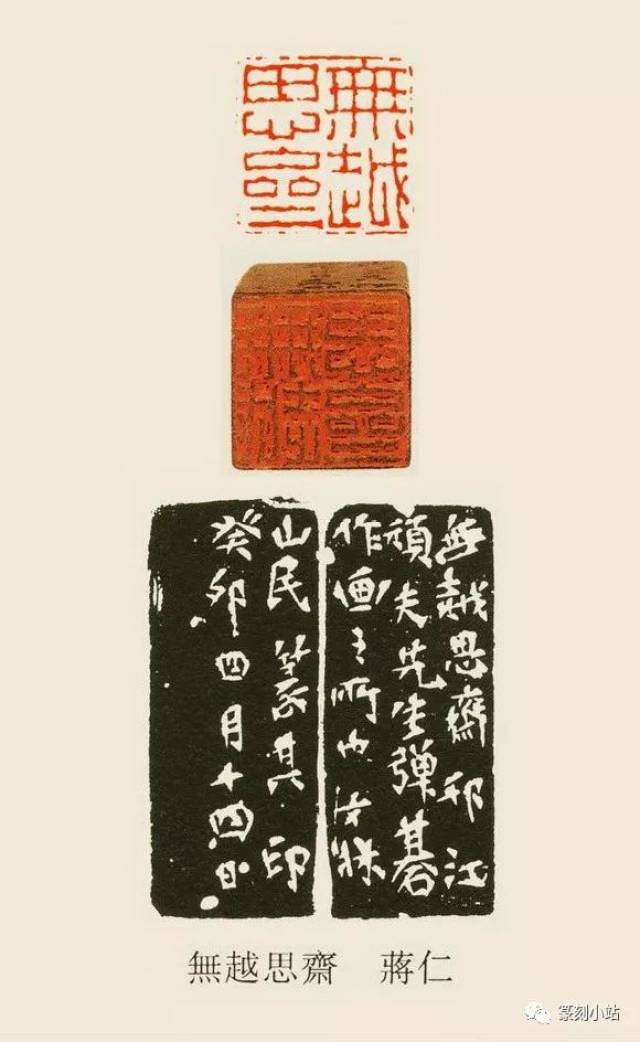 無越
思齋
無越思齋邗江
頑夫先生彈碁
作画之所也女牀
山民篆其印
癸卯四月十四日
無越思齋 蔣仁
篆刻小站